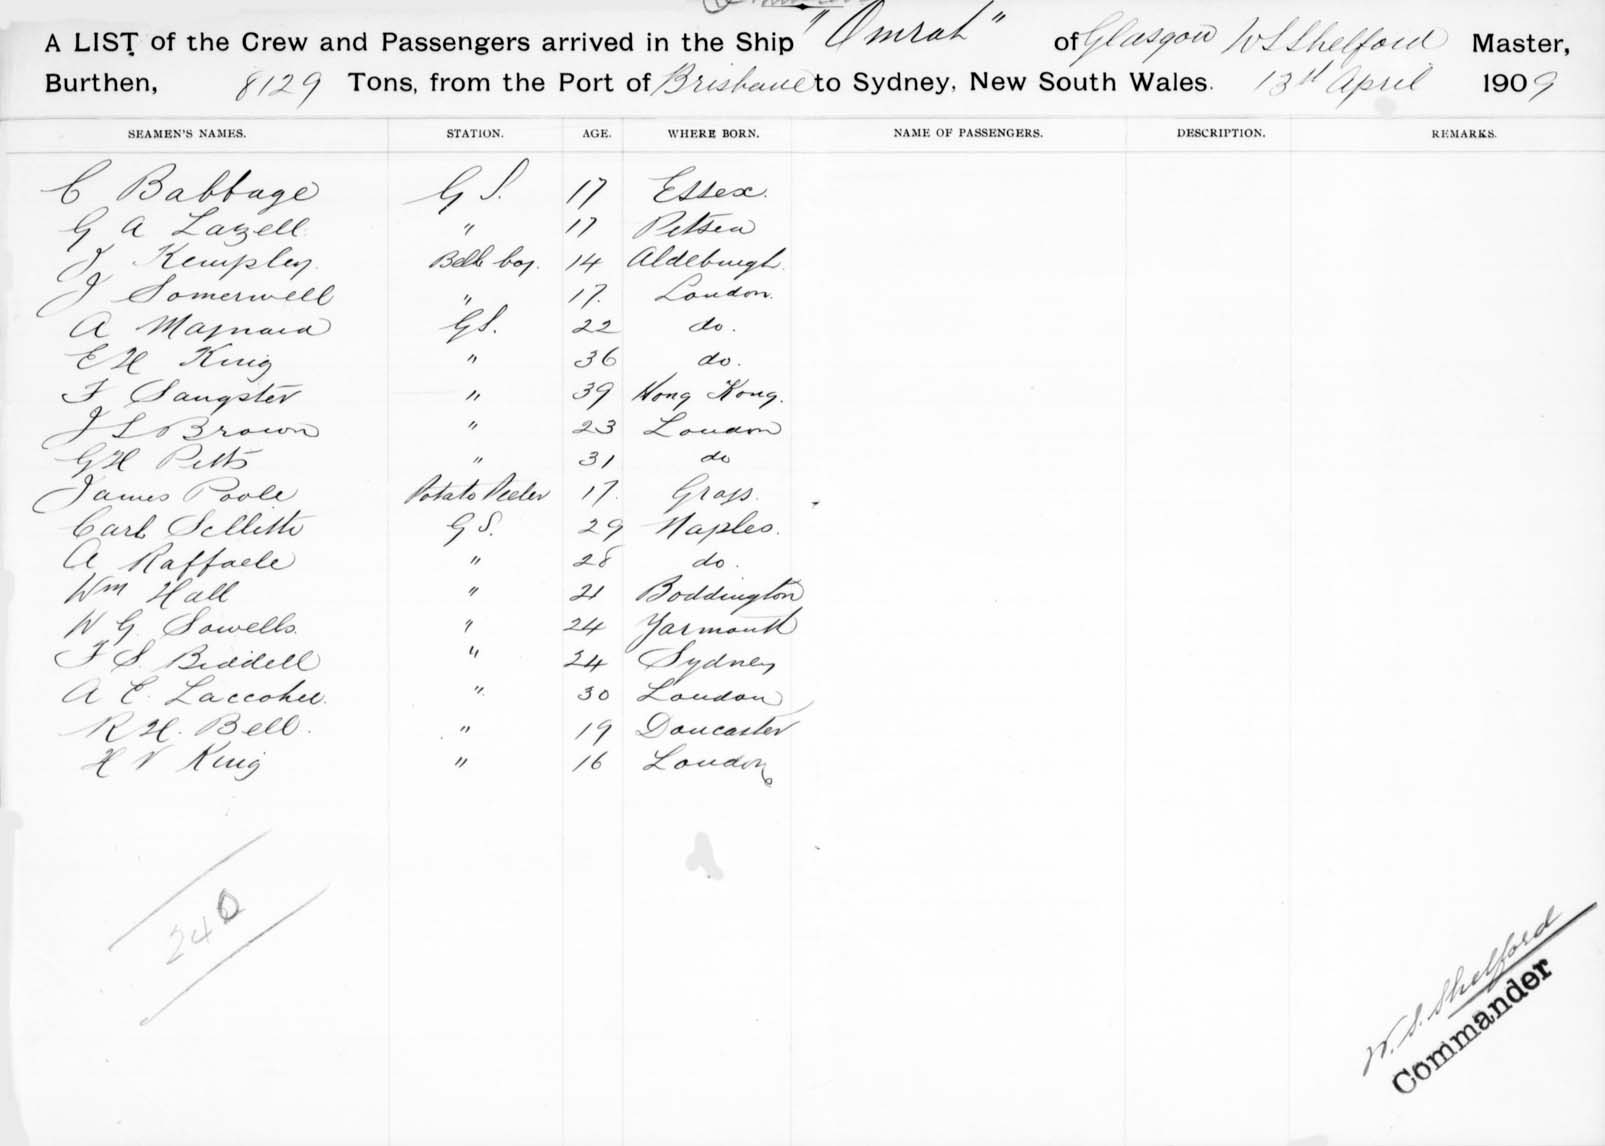 A LIST of the Crew and Passengers arrived in the Ship "Omrah" of Glasgow W S Shelford Master,
Burthen, 8129 Tons, from the Port of Brisbane to Sydney, New South Wales. 13th April 1909
SEAMEN'S NAMES. STATION. AGE. WHERE BORN. NAME OF PASSENGERS. DESCRIPTION. REMARKS.
C Babbage G S. 17 Essex.
G A Lazell " 17 Pitsea
J Kempley. Bell boy. 14 Aldeburgh.
J Somerwell " 17. London.
A Maynard G S. 22 do.
E H King " 36 do.
F Sangster " 39 Hong Kong.
J L Brown " 23 London
G H Pitts " 31 do
James Poole Potato Peeler 17. Grays.
Carl Sellitti G S. 29 Naples.
A Raffaele " 28 do.
Wm Hall " 21 Boddington
W G Sowells. " 24 Yarmouth
F S. Biddell " 24 Sydney
A E. " 30 London
R H. Bell. " 19 Doncaster
H V King " 16 London
240
W. S. Shelford
Commander